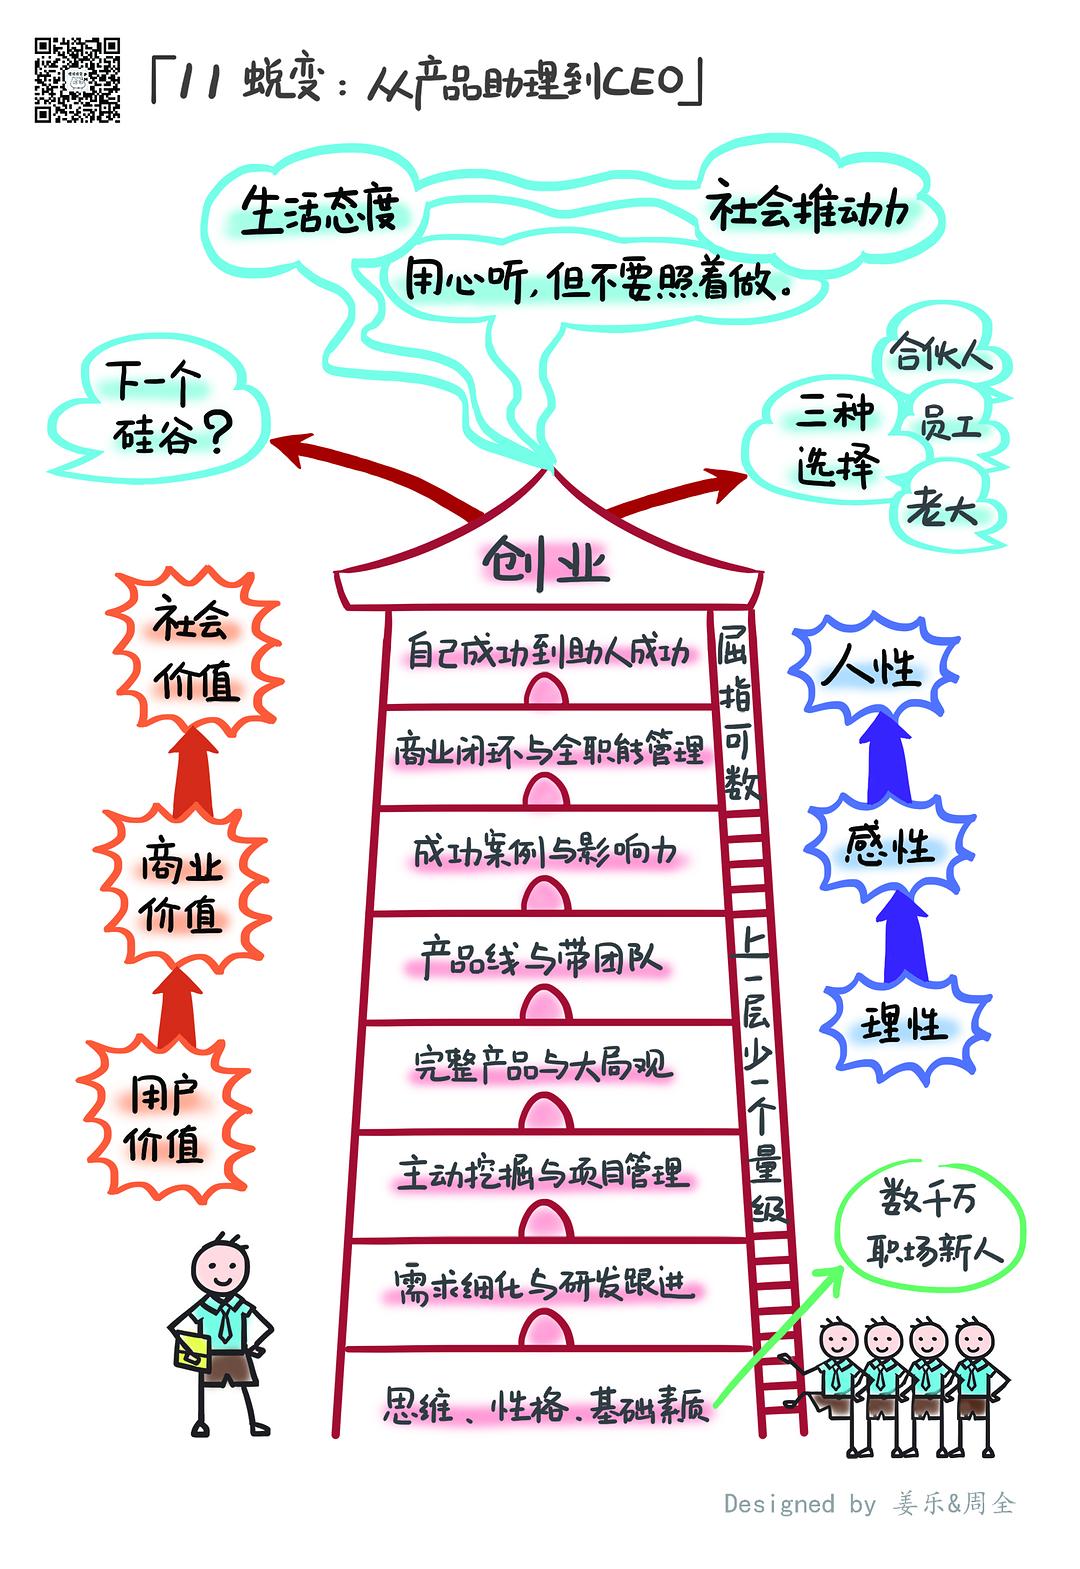 「11 蜕变：从产品助理到CEO」
生活态度
社会推动力
用心听，但不要照着做。
下一个
硅谷？
三种
选择
合伙人
员工
老大
创业
自己成功到助人成功
商业闭环与全职能管理
成功案例与影响力
产品线与带团队
完整产品与大局观
主动挖掘与项目管理
需求细化与研发跟进
思维、性格、基础素质
屈指可数
上一层少一个量级
社会
价值
商业
价值
用户
价值
人性
感性
理性
数千万
职场新人
Designed by 姜乐&周全